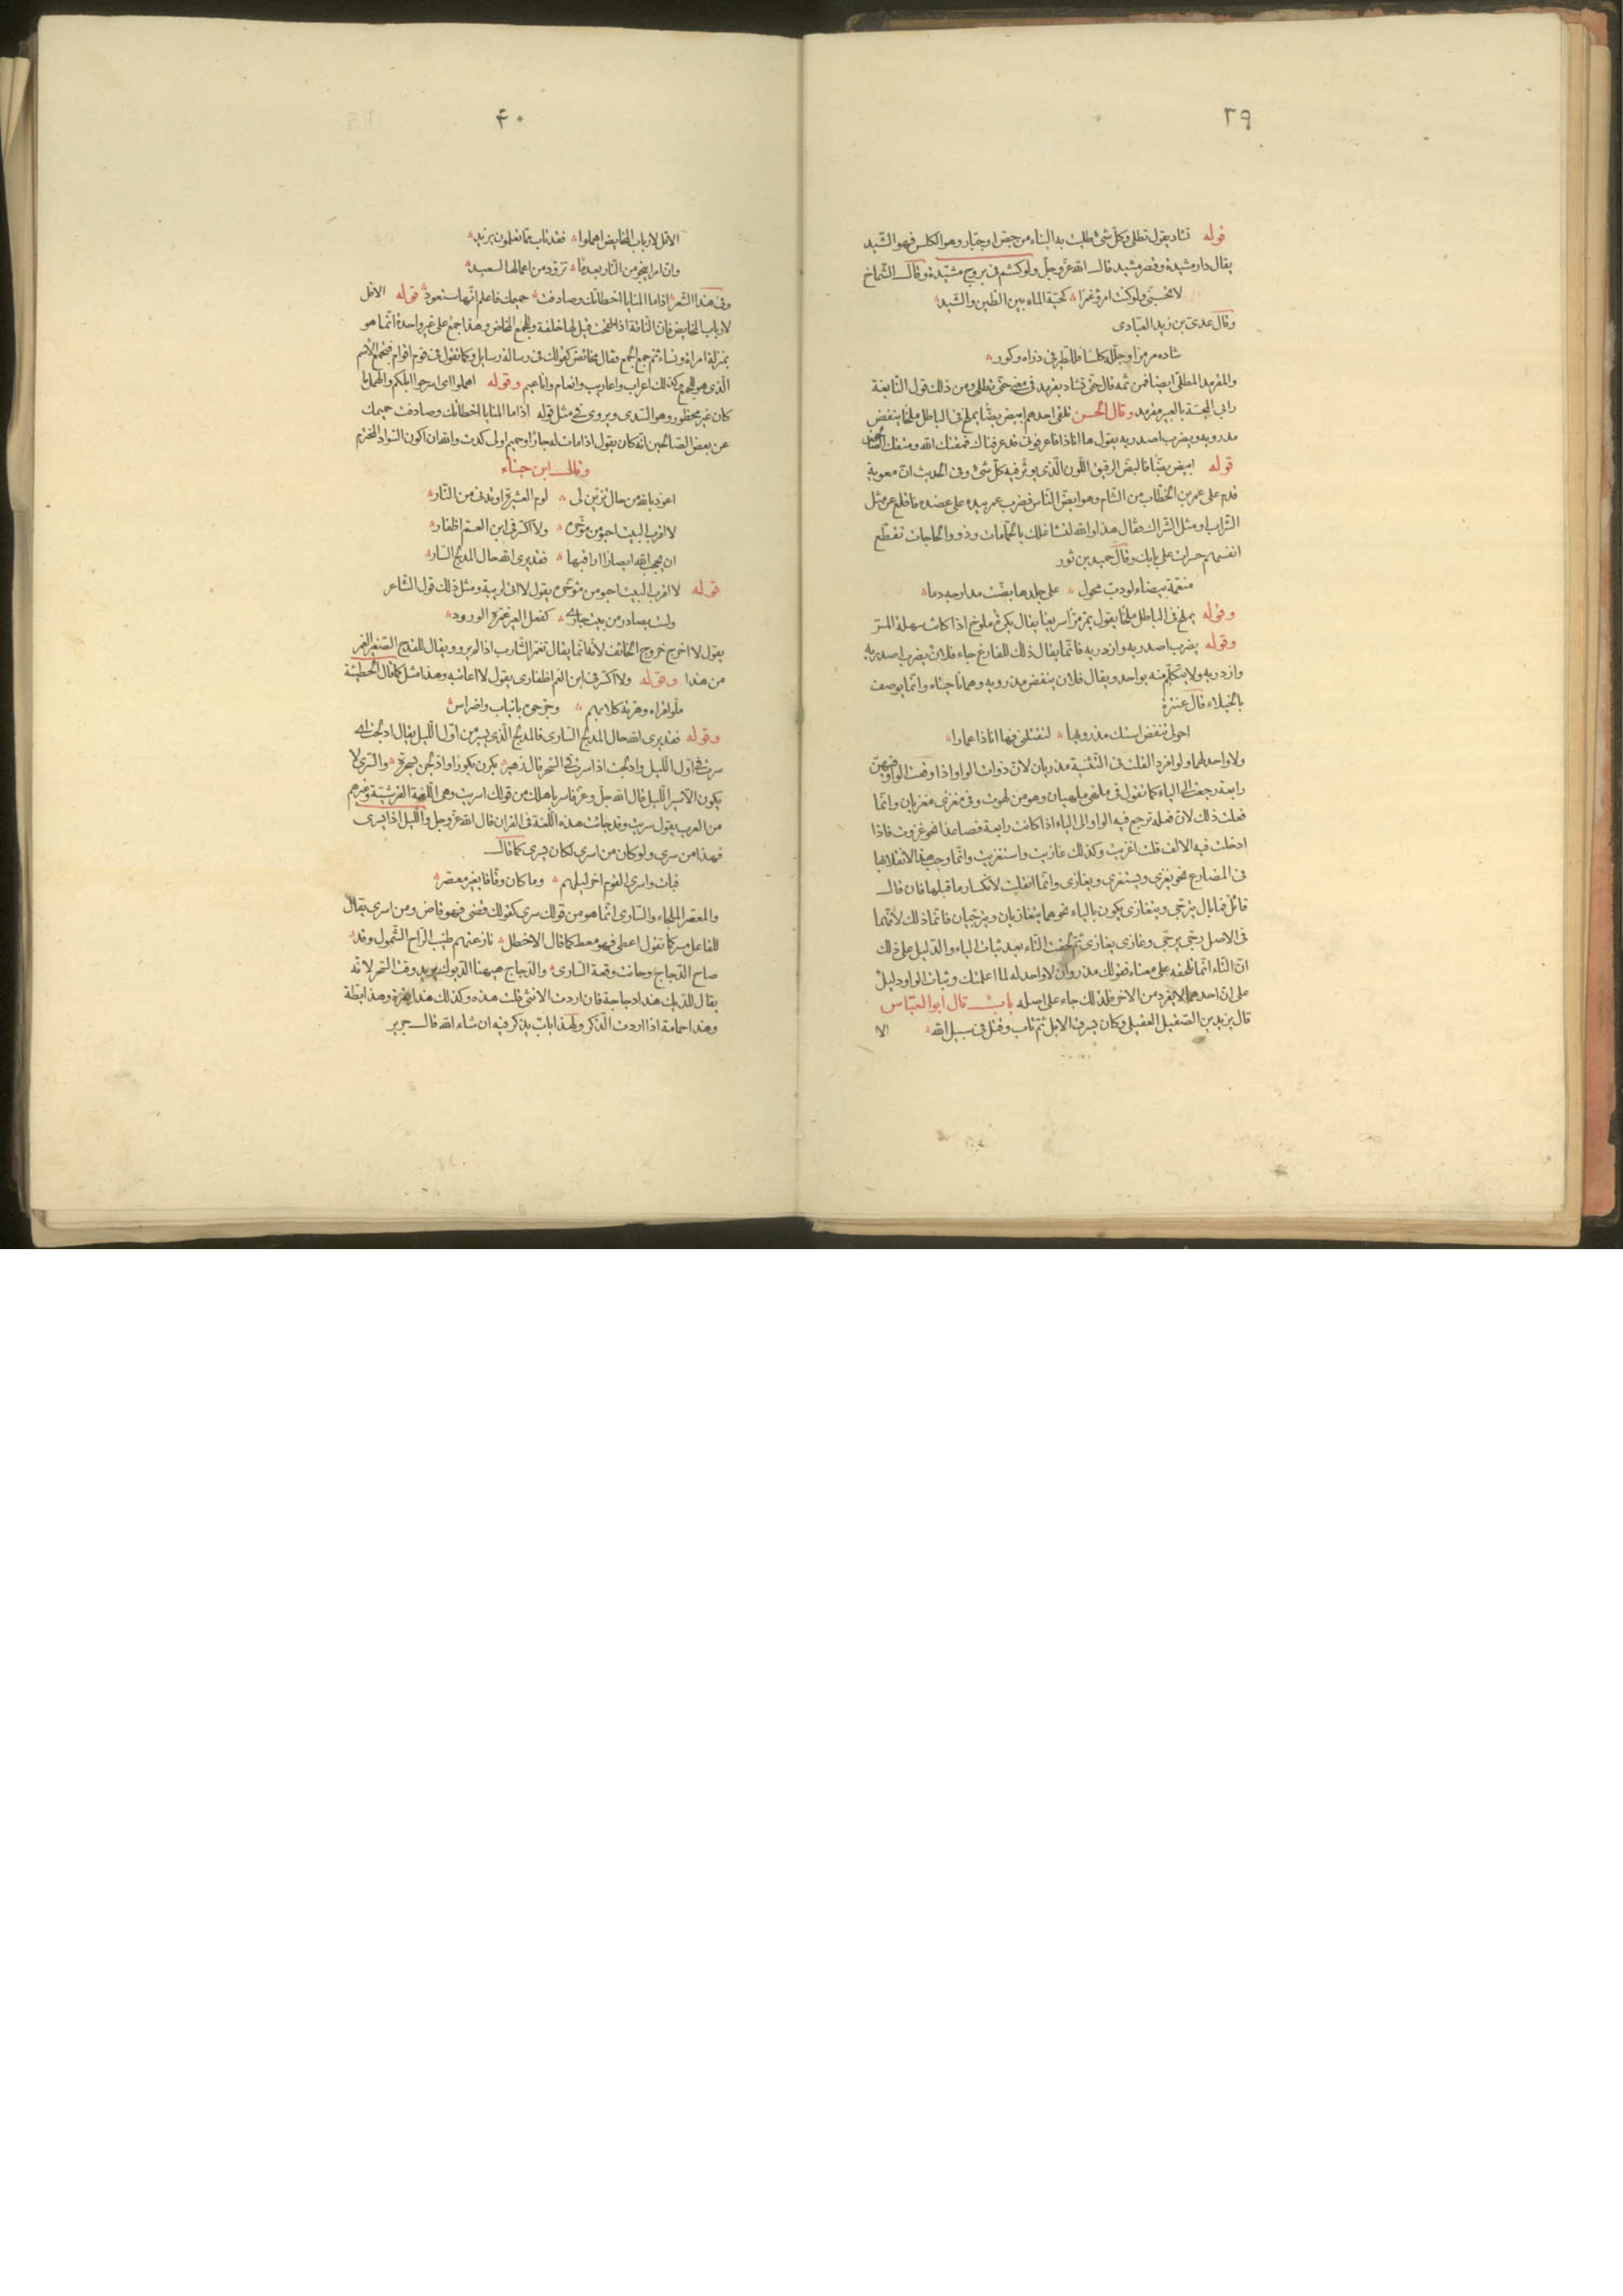 ٣٩
قوله تشاد يقول تطلى وكل شئ طليت به البناء من جص او جيار وهو الكلس فهو الشيد
يقال دار مشيدة وقصر مشيد قال الله عز وجل ولو كنتم فى بروج مشيدة وقال الشماخ
لا تحسبنى ولو كنت امرؤ غمرا كحية الماء بين الطين والشيد
وقال عدى بن زيد العبادى
شاده مرمرا وجلله كلسا فللطير فى ذراه وكور
والمقرمد المطلى ايضا فمن ثمه قال حتى تشاد بقرمد فى معنى حتى تطلى ومن ذلك قول النابغة
رابى المجسة بالعبير مقرمد وقال الحسن تلقى احدهم ابيض بضا يملخ فى الباطل ملخا ينفض
مذرويه ويضرب اصدريه يقول ها انا ذا فاعرفونى قد عرفناك فمقتك الله ومقتك الصالحون
قوله ابيض بضا فالبض الرقيق اللون الذى يؤثر فيه كل شئ وفى الحديث ان معوية
قدم على عمر بن الخطاب من الشام وهو ابض الناس فضرب عمر بيده على عضده فاقلع عن مثل
الشراب او مثل الشراك فقال هذا والله لتشاغلك بالحمامات وذوو الحاجات تقطع
انفسهم حسرات على بابك وقال حميد بن ثور
منعمة بيضاء لو دب محول على جلدها بضت مدارجه دما
وقوله يملخ فى الباطل ملخا يقول يمر مرا سريعا يقال بكرة ملوخ اذا كانت سهلة المر
وقوله يضرب اصدريه وازدريه فانما يقال ذلك للفارغ جاء فلان يضرب اصدريه
وازدريه ولا يتكلم منه بواحد ويقال فلان ينفض مذرويه وهما ناحيتاه وانما يوصف
بالخيلاء قال عنترة
احولى تنفض استك مذرويها لتقتلنى فها انا ذا عمارا
ولا واحد لهما ولو افرد لقلت فى التثنية مذريان لان ذوات الواو اذا وقعت الواو فيهن
رابعة رجعت الى الياء كما تقول فى ملهى ملهيان وهو من لهوت وفى مغزى مغزيان وانما
فعلت ذلك لان فعله ترجع فيه الواو الى الياء اذا كانت رابعة فصاعدا نحو غزوت فاذا
ادخلت فيه الالف قلت اغزيت وكذلك غازيت واستغزيت وانما وجب هذا الانقلابها
فى المضارع نحو يغزى ويستغزى ويغازى وانما انقلبت لانكسار ما قبلها فان قال
قائل فما بال يترجى ويتغازى يكون بالياء نحو هما يتغازيان ويترجيان فانما ذلك لانهما
فى الاصل رجى يرجى وغازى يغازى ثم لحقت التاء بعد ثبات الياء والدليل على ذلك
ان التاء انما تلحقه على معناه فقولك مذروان لا واحد له لما اعلمتك وثبات الواو دليل
على ان احدهما لا يفرد من الاخر فلذلك جاء على اصله باب قال ابو العباس
قال يزيد بن الصقيل العقيلى وكان يسرق الابل ثم تاب وقتل فى سبيل الله
الا
۴۰
الا قل لارباب المخايض اهملوا فقد تاب مما تعلمون يزيد
وان امرا ينجو من النار بعد ما تزود من اعمالها لسعيد
وفى هذا الشعر اذا ما المنايا اخطاتك وصادفت حميمك فاعلم انها ستعود قوله الا قل
لارباب المخايض فان الناقة اذا لقحت قيل لها خلفة وللجمع المخاض وهذا جمع على غير واحدة انما هو
بمنزلة امراة ونساء ثم جمع الجمع فقال مخائض كقولك فى رسالة رسايل وكما تقول فى قوم اقوام فتجمع الاسم
الذى هو للجمع وكذلك اعراب واعاريب وانعام واناعيم وقوله اهملوا اى اسرحوا ابلكم والهمل ما
كان غير محظور وهو السدى ويروى فى مثل قوله اذا ما المنايا اخطاتك وصادفت حميمك
عن بعض الصالحين انه كان يقول اذا مات له جار او حميم اولى كدت والله ان اكون السواد المخترم
وقال ابن حبناء
اعوذ بالله من حال تزين لى لوم العشيرة او تدنى من النار
لا اقرب البيت احبو من مؤخره ولا اكسر فى ابن العم اظفارى
ان يحجب الله ابصارا اراقبها فقد يرى الله حال المدلج السارى
قوله لا اقرب البيت احبو من مؤخره يقول لا اتى لريبة ومثل ذلك قول الشاعر
ولست بصادر من بيت جارى كفعل العير غمره الورود
يقول لا اخرج خروج الخائف لانه انما يقال تغمر الشارب اذا لم يرو ويقال للقدح الصغير الغمر
من هذا وقوله ولا اكسر فى ابن العم اظفارى يقول لا اغتابه وهذا مثل كما قال الحطيئة
ملوا قراه وهرته كلابهم وجرحوه بانياب واضراس
وقوله فقد يرى الله حال المدلج السارى فالمدلج الذى يسير من اول الليل يقال ادلجت اى
سرت فى اول الليل وادلجت اذا سرت فى السحر قال زهير بكرن بكورا وادلجن بسحرة والسرى لا
يكون الا سير الليل قال الله جل وعز فاسر باهلك من قولك اسريت وهى اللغة القرشية وغيرهم
من العرب يقول سريت وقد جائت هذه اللغة فى القران قال الله عز وجل والليل اذا يسرى
فهذا من سرى ولو كان من اسرى لكان يسرى كما قال
فبات واسرى القوم اخر ليلهم وما كان وقافا بغير معصر
والمعصر الملجاء والسارى انما هو من قولك سرى كقولك قضى فهو قاض ومن اسرى يقال
للفاعل مسر كما تقول اعطى فهو معط كما قال الاخطل نازعتهم طيب الراح الشمول وقد
صاح الدجاج وحانت وقعة السارى والدجاج ههنا الديوك يريد وقت السحر لانه
يقال للديك هذا دجاجة فان اردت الانثى قلت هذه وكذلك هذا بقرة وهذا بطة
وهذا حمامة اذا اردت الذكر ولهذا باب يذكر فيه ان شاء الله قال جرير